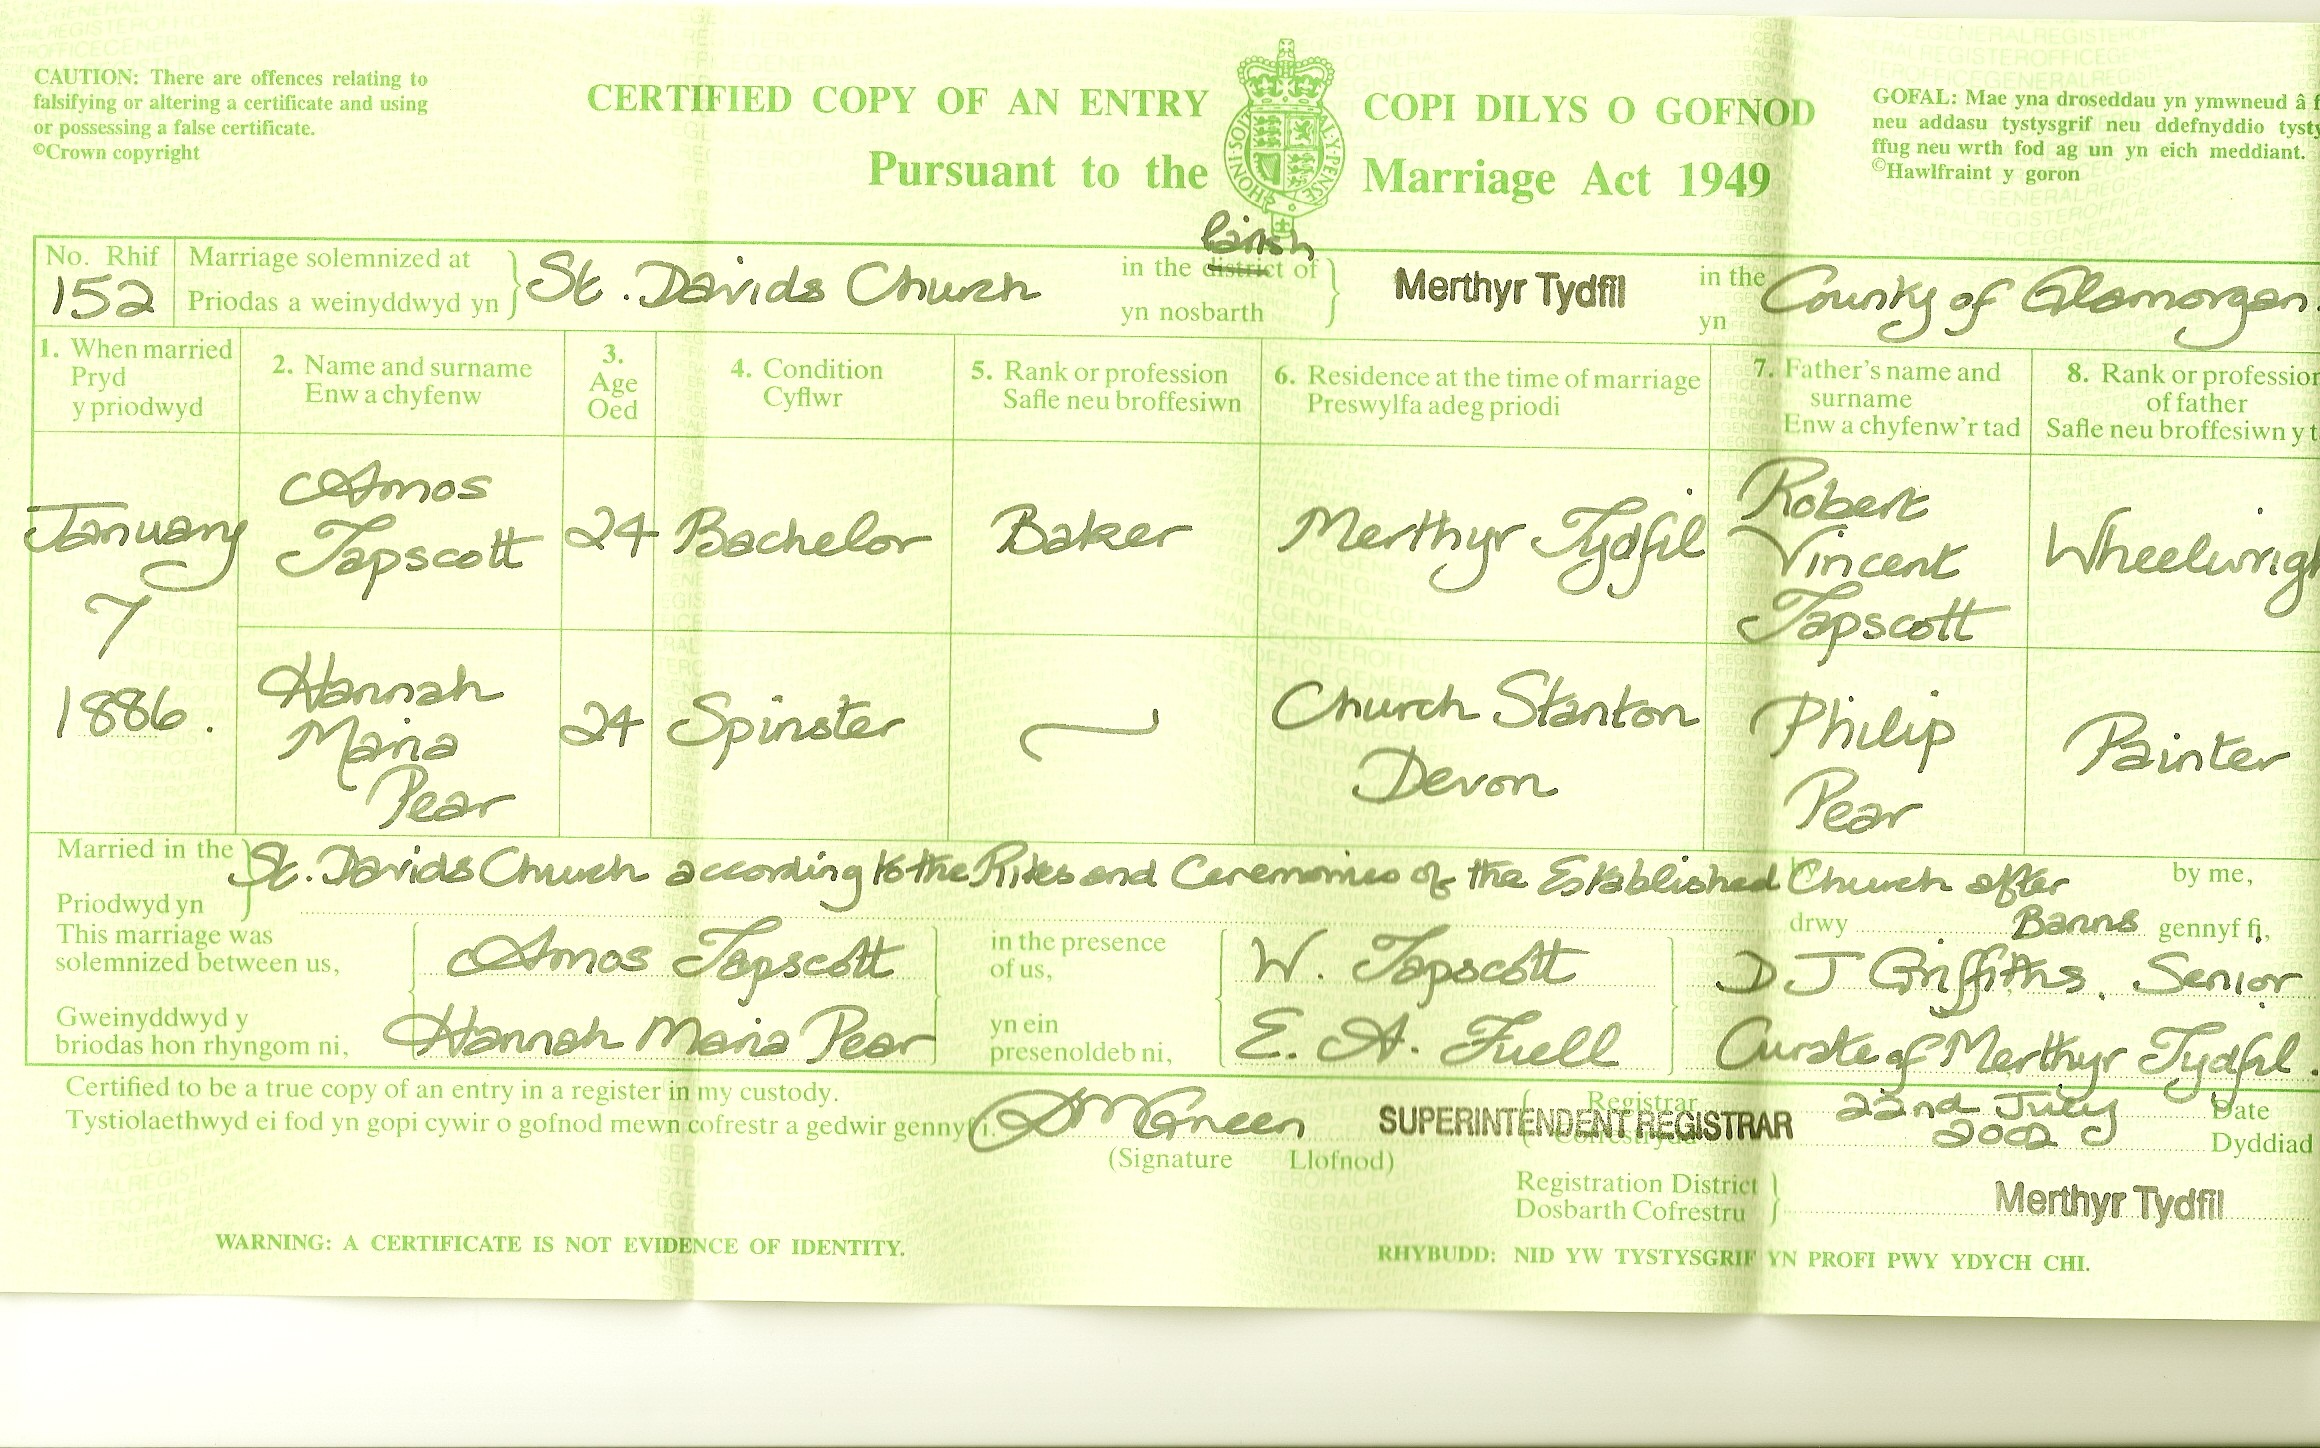 CAUTION: There are offences relating to
falsifying or altering a certificate and using
or possessing a false certificate.
©Crown copyright
CERTIFIED COPY OF AN ENTRY
Pursuant to the
COPI DILYS O GOFNOD
Marriage Act 1949
GOFAL: Mae yna droseddau yn ymwneud â f
neu addasu tystysgrif neu ddefnyddio tysty
ffug neu wrth fod ag un yn eich meddiant.
©Hawlfraint y goron
No. Rhif
152
Marriage solemnized at
Priodas a weinyddwyd yn
St. Davids Church
Parish
in the district of
yn nosbarth
Merthyr Tydfil
in the
yn
County of Glamorgan.
1. When married
Pryd
y priodwyd
2. Name and surname
Enw a chyfenw
3.
Age
Oed
4. Condition
Cyflwr
5. Rank or profession
Safle neu broffesiwn
6. Residence at the time of marriage
Preswylfa adeg priodi
7. Father's name and
surname
Enw a chyfenw'r tad
8. Rank or profession
of father
Safle neu broffesiwn y t
January
7
1886.
Amos
Tapscott
24
Bachelor
Baker
Merthyr Tydfil
Robert
Vincent
Tapscott
Wheelwrigh
Hannah
Maria
Pear
24
Spinster
Church Stanton
Devon
Philip
Pear
Painter
Married in the
Priodwyd yn
St. Davids Church according to the Rites and Ceremonies of the Established Church after
by me,
drwy
Banns
gennyf fi,
This marriage was
solemnized between us,
Gweinyddwyd y
briodas hon rhyngom ni,
Amos Tapscott
Hannah Maria Pear
in the presence
of us,
yn ein
presenoldeb ni,
W. Tapscott
E. A. Fuell
D J Griffiths, Senior
Curate of Merthyr Tydfil.
Certified to be a true copy of an entry in a register in my custody.
Tystiolaethwyd ei fod yn gopi cywir o gofnod mewn cofrestr a gedwir gennyf i.
Green
(Signature Llofnod)
Registrar
SUPERINTENDENT REGISTRAR
22nd July
2002
Date
Dyddiad
Registration District
Dosbarth Cofrestru
Merthyr Tydfil
WARNING: A CERTIFICATE IS NOT EVIDENCE OF IDENTITY.
RHYBUDD: NID YW TYSTYSGRIF YN PROFI PWY YDYCH CHI.